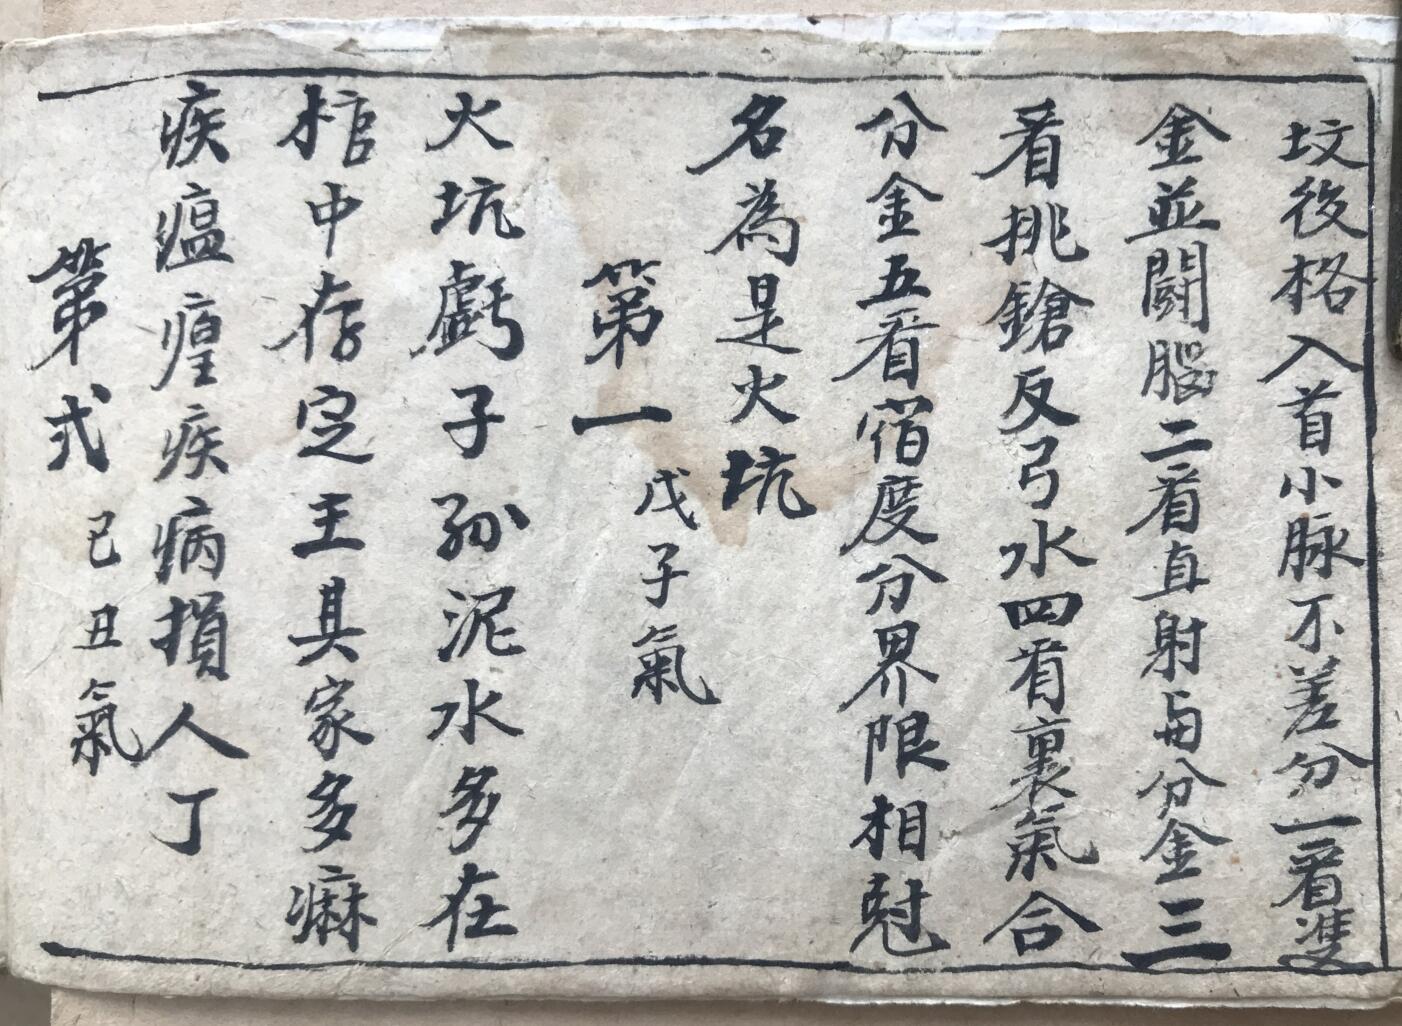 坟後格入首小脉不差分一看雙
金並鬪腦二看直射与分金三
看挑鎗反弓水四看裏氣合
分金五看宿度分界限相尅
名為是火坑
第一 戊子氣
火坑戲子孫泥水多在
棺中存定主其家多痳
疾瘟瘟疾病損人丁
第弍 己丑氣